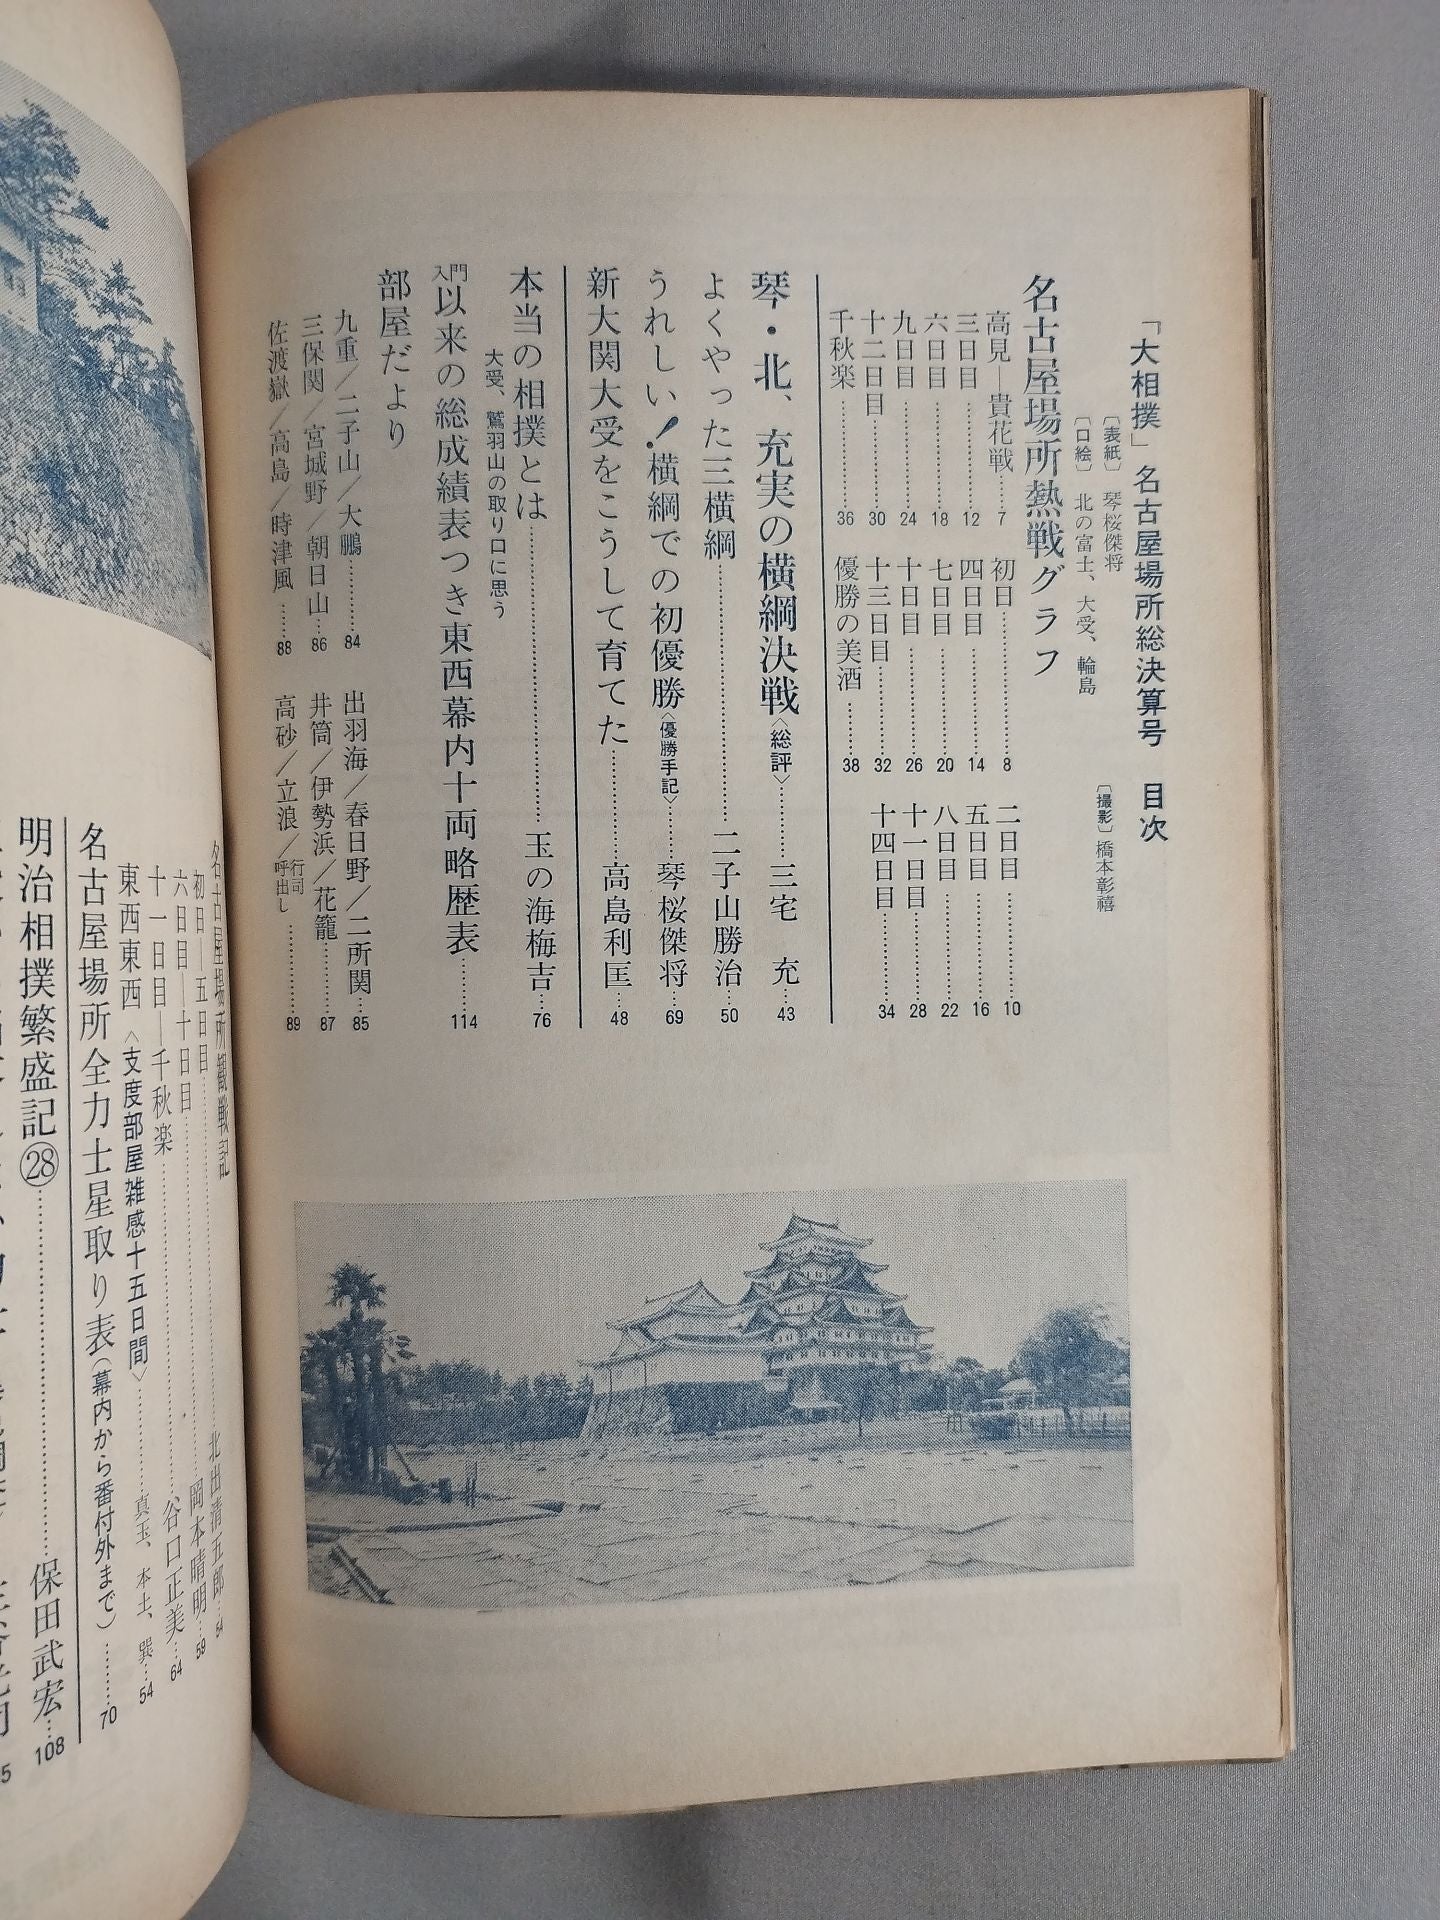 「大相撲」名古屋場所総決算号 目次
〔表紙〕琴桜傑将
〔口絵〕北の富士、大受、輪島
〔撮影〕橋本彰禧
名古屋場所熱戦グラフ
高見―貴花戦……7 初日……8 二日目……10
三日目……12 四日目……14 五日目……16
六日目……18 七日目……20 八日目……22
九日目……24 十日目……26 十一日目……28
十二日目……30 十三日目……32 十四日目……34
千秋楽……36 優勝の美酒……38
琴・北、充実の横綱決戦〈総評〉……三宅 充…43
よくやった三横綱……二子山勝治…50
うれしい!横綱での初優勝〈優勝手記〉……琴桜傑将…69
新大関大受をこうして育てた……高島利匡…48
本当の相撲とは……玉の海梅吉…76
大受、鷲羽山の取り口に思う
入門以来の総成績表つき東西幕内十両略歴表……114
部屋だより
九重/二子山/大鵬……84 出羽海/春日野/二所関…85
三保関/宮城野/朝日山…86 井筒/伊勢浜/花籠……87
佐渡嶽/高島/時津風……88 高砂/立浪/行司 呼出し……89
名古屋場所観戦記
初日―五日目……北出清五郎…54
六日目―十日目……岡本晴明…59
十一日目―千秋楽……谷口正美…64
東西東西〈支度部屋雑感十五日間〉……真玉、本土、巽…54
名古屋場所全力士星取り表(幕内から番付外まで)……70
明治相撲繁盛記㉘……保田武宏…108